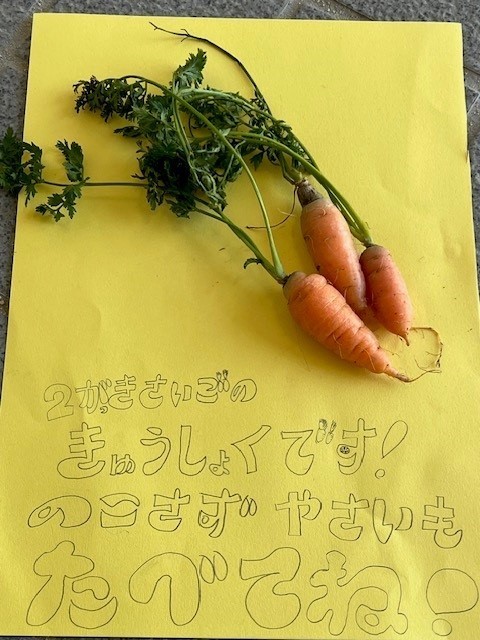 2がっきさいごの
きゅうしょくです!
のこさず やさいも
たべてね!